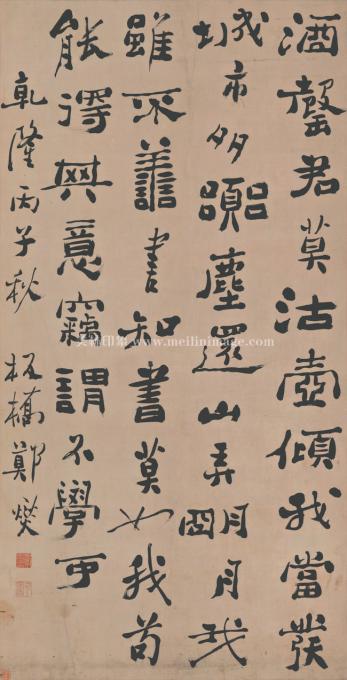 酒罄君莫沽壺傾我當發
城市多囂塵還山弄明月我
雖不善書知書莫如我苟
能得其意竊謂不學可
乾隆丙子秋板橋鄭燮
www.meilinimage.com